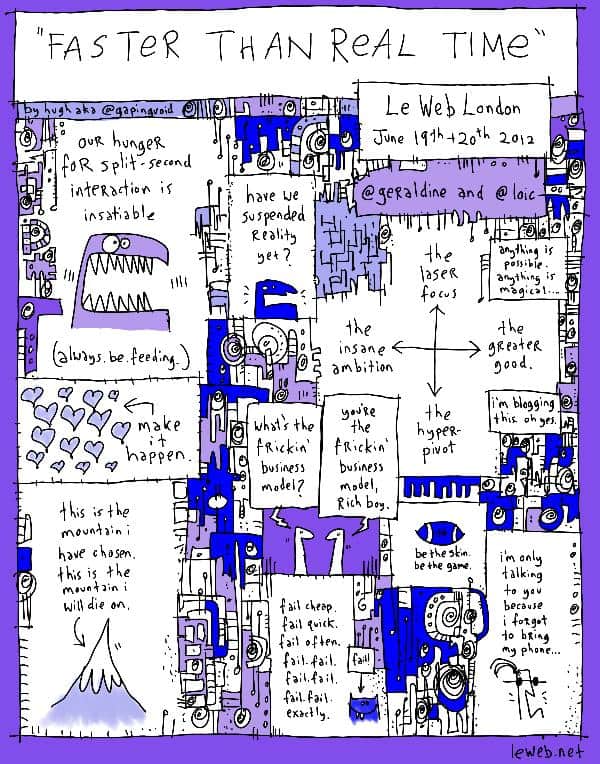 "FASTER THAN REAL TIME"
by hugh aka @gapingvoid
Le Web London
June 19th + 20th 2012
@geraldine and @loic
our hunger
for split-second
interaction is
insatiable
(always.be.feeding.)
have we
suspended
reality
yet?
the
laser
focus
anything is
possible.
anything is
magical...
the
insane
ambition
the
greater
good.
the
hyper-
pivot
make
it
happen.
what's the
frickin'
business
model?
you're
the
frickin'
business
model,
Rich boy.
i'm blogging
this. oh yes.
this is the
mountain i
have chosen.
this is the
mountain i
will die on.
be the skin.
be the game.
fail cheap.
fail quick.
fail often.
fail.fail.
fail.fail.
fail.fail.
exactly.
fail!
i'm only
talking
to you
because
i forgot
to bring
my phone...
leweb.net